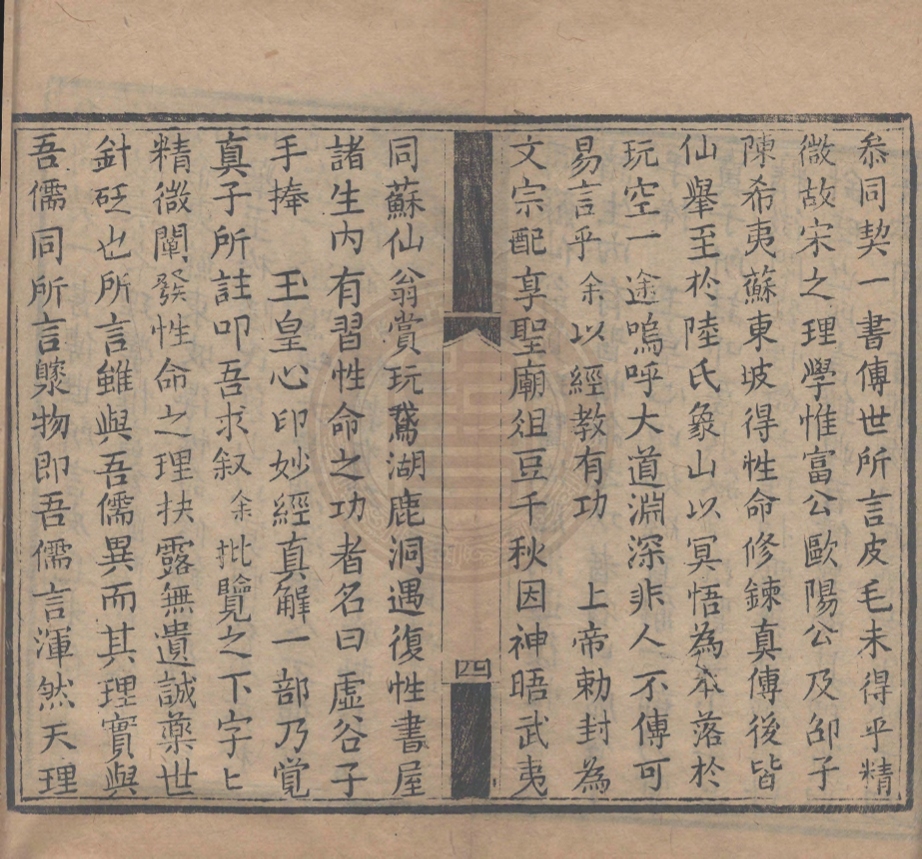 叅同契一書傳世所言皮毛未得乎精
微故宋之理學惟富公歐陽公及邵子
陳希夷蘇東坡得性命修鍊真傳後皆
仙舉至於陸氏象山以冥悟為本落於
玩空一途嗚呼大道淵深非人不傳可
易言乎余以經教有功　上帝勅封為
文宗配享聖廟俎豆千秋因神晤武夷
四
同蘇仙翁賞玩鵞湖鹿洞遇復性書屋
諸生内有習性命之功者名曰虛谷子
手捧　玉皇心印妙經真解一部乃覺
真子所註叩吾求叙余批覽之下字匕
精微闡發性命之理扶露無遺誠藥世
針砭也所言雖與吾儒異而其理實與
吾儒同所言槩物即吾儒言渾然天理